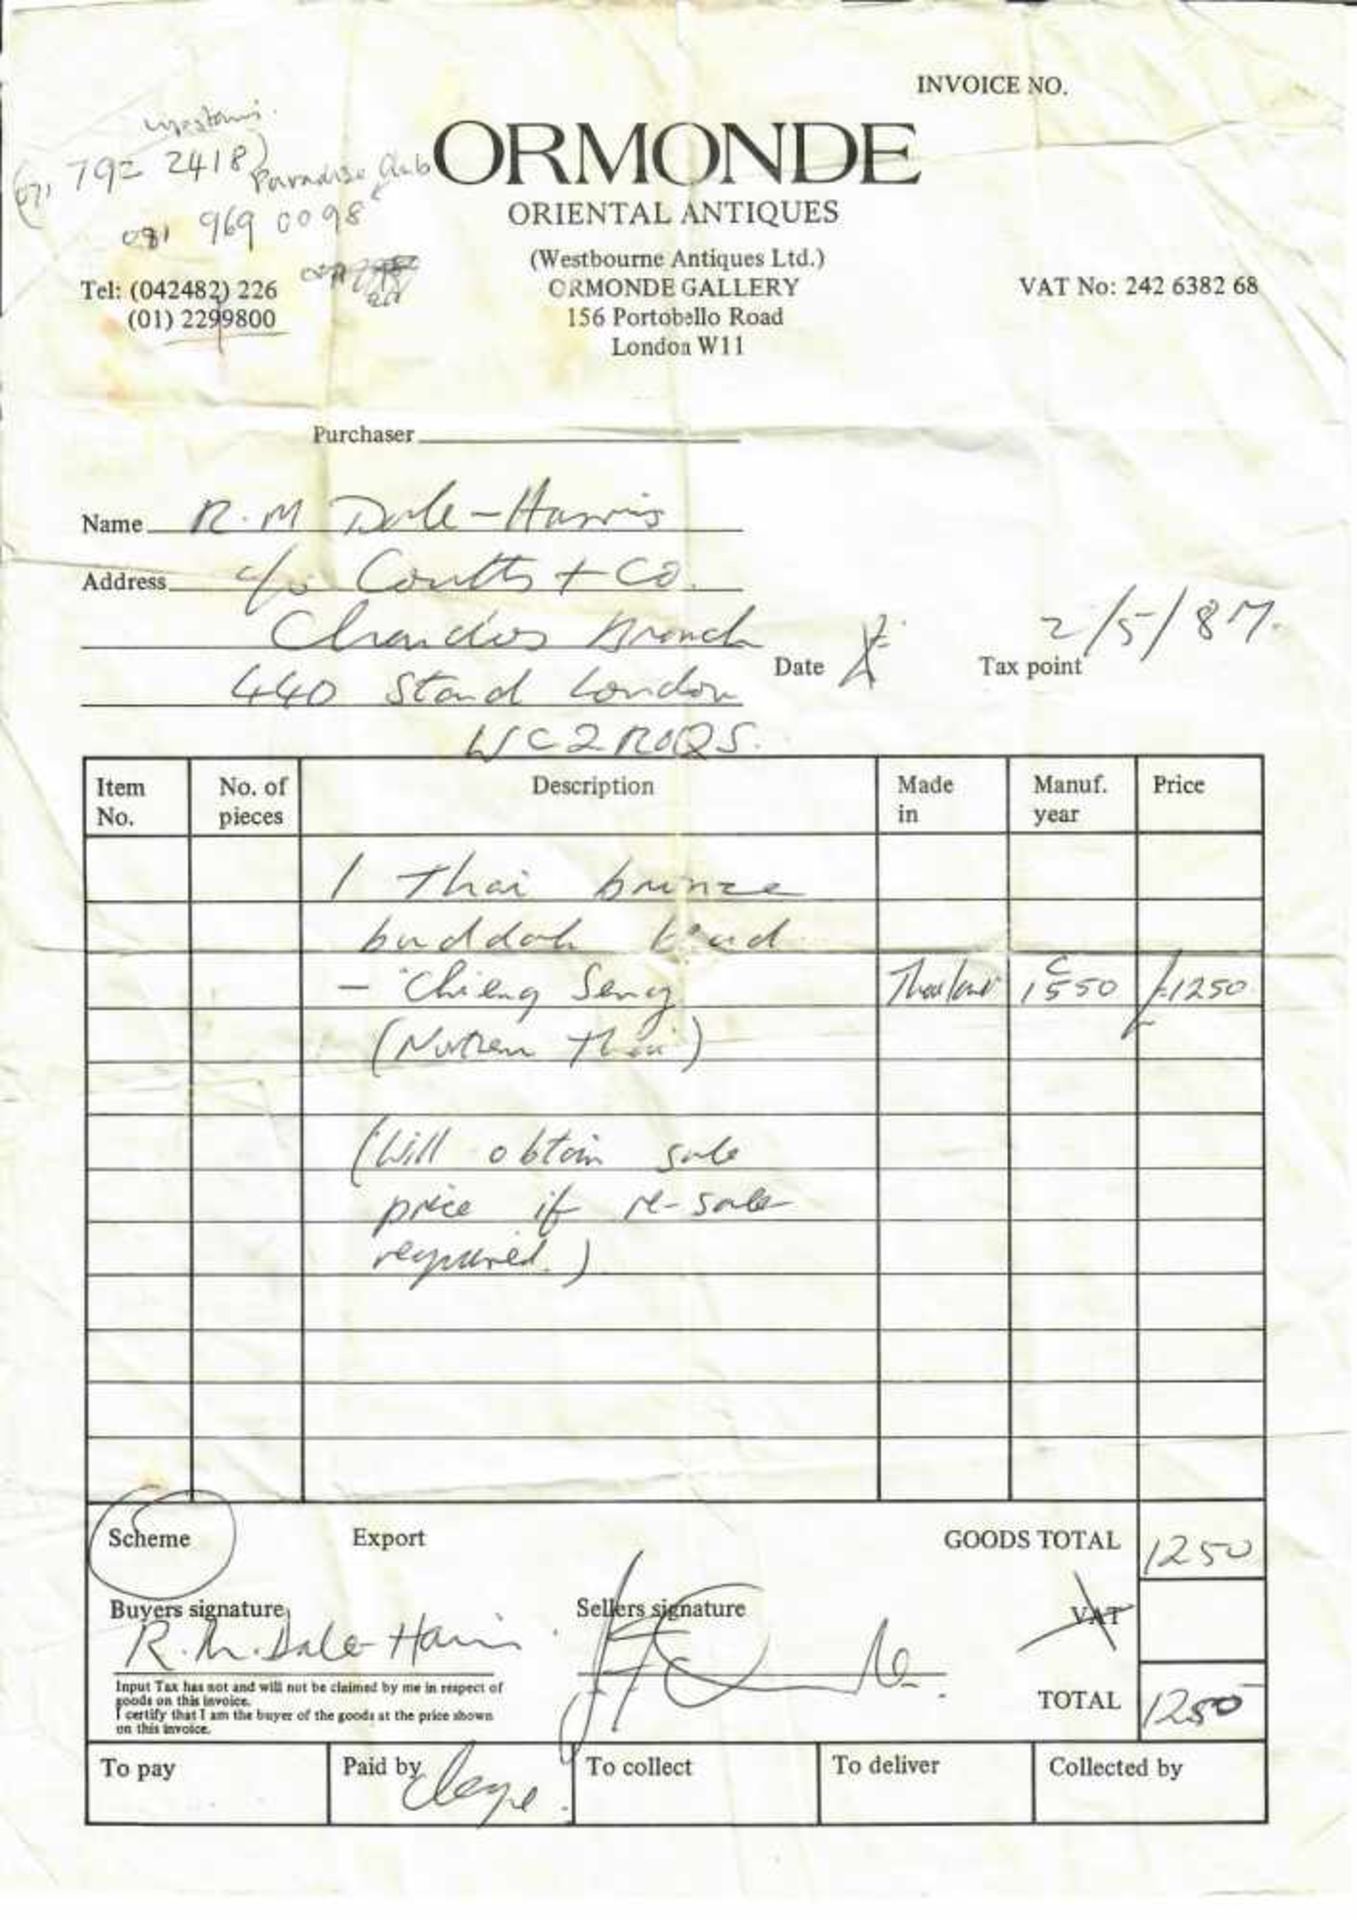 INVOICE NO.
792 2418)
Paradise Club
081 969 0098
ORMONDE
ORIENTAL ANTIQUES
(Westbourne Antiques Ltd.)
ORMONDE GALLERY
156 Portobello Road
London W11
Tel: (042482) 226
(01) 2299800
VAT No: 242 6382 68
Purchaser
Name R.M Dale-Harris
Address c/o Coutts + Co.
Chandos Branch
440 Stand London
WC2R0QS.
Date
Tax point 2/5/87.
Item No.
No. of pieces
Description
Made in
Manuf. year
Price
1 Thai bronze
buddah head
- Chieng Seng Thailand c 1550 £1250
(Northern Thai)
(Will obtain sale
price if re-sale
required.)
Scheme Export GOODS TOTAL 1250
Buyers signature Sellers signature VAT
R.M. Dale-Harris
Input Tax has not and will not be claimed by me in respect of
goods on this invoice.
I certify that I am the buyer of the goods at the price shown
on this invoice.
TOTAL 1250
To pay
Paid by
To collect
To deliver
Collected by